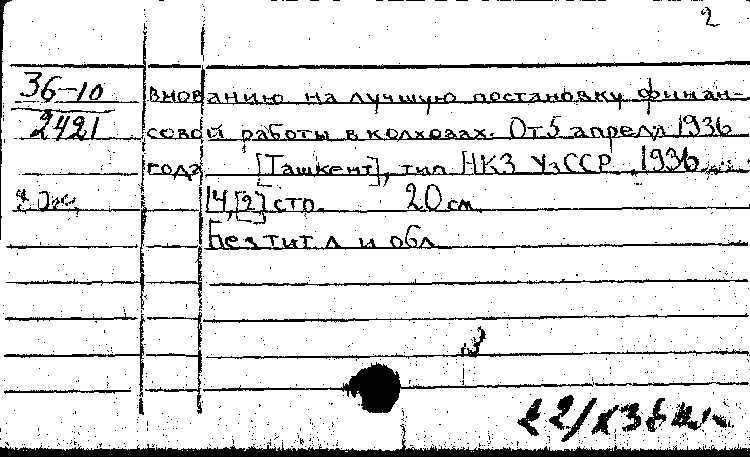 2
36-10
2421
внованию на лучшую постановку финан-
совой работы в колхозах. От 5 апреля 1936
года [Ташкент], тип НКЗ УзССР, 1936
14,[2] стр. 20 см.
Без тит л и обл
22/X 36